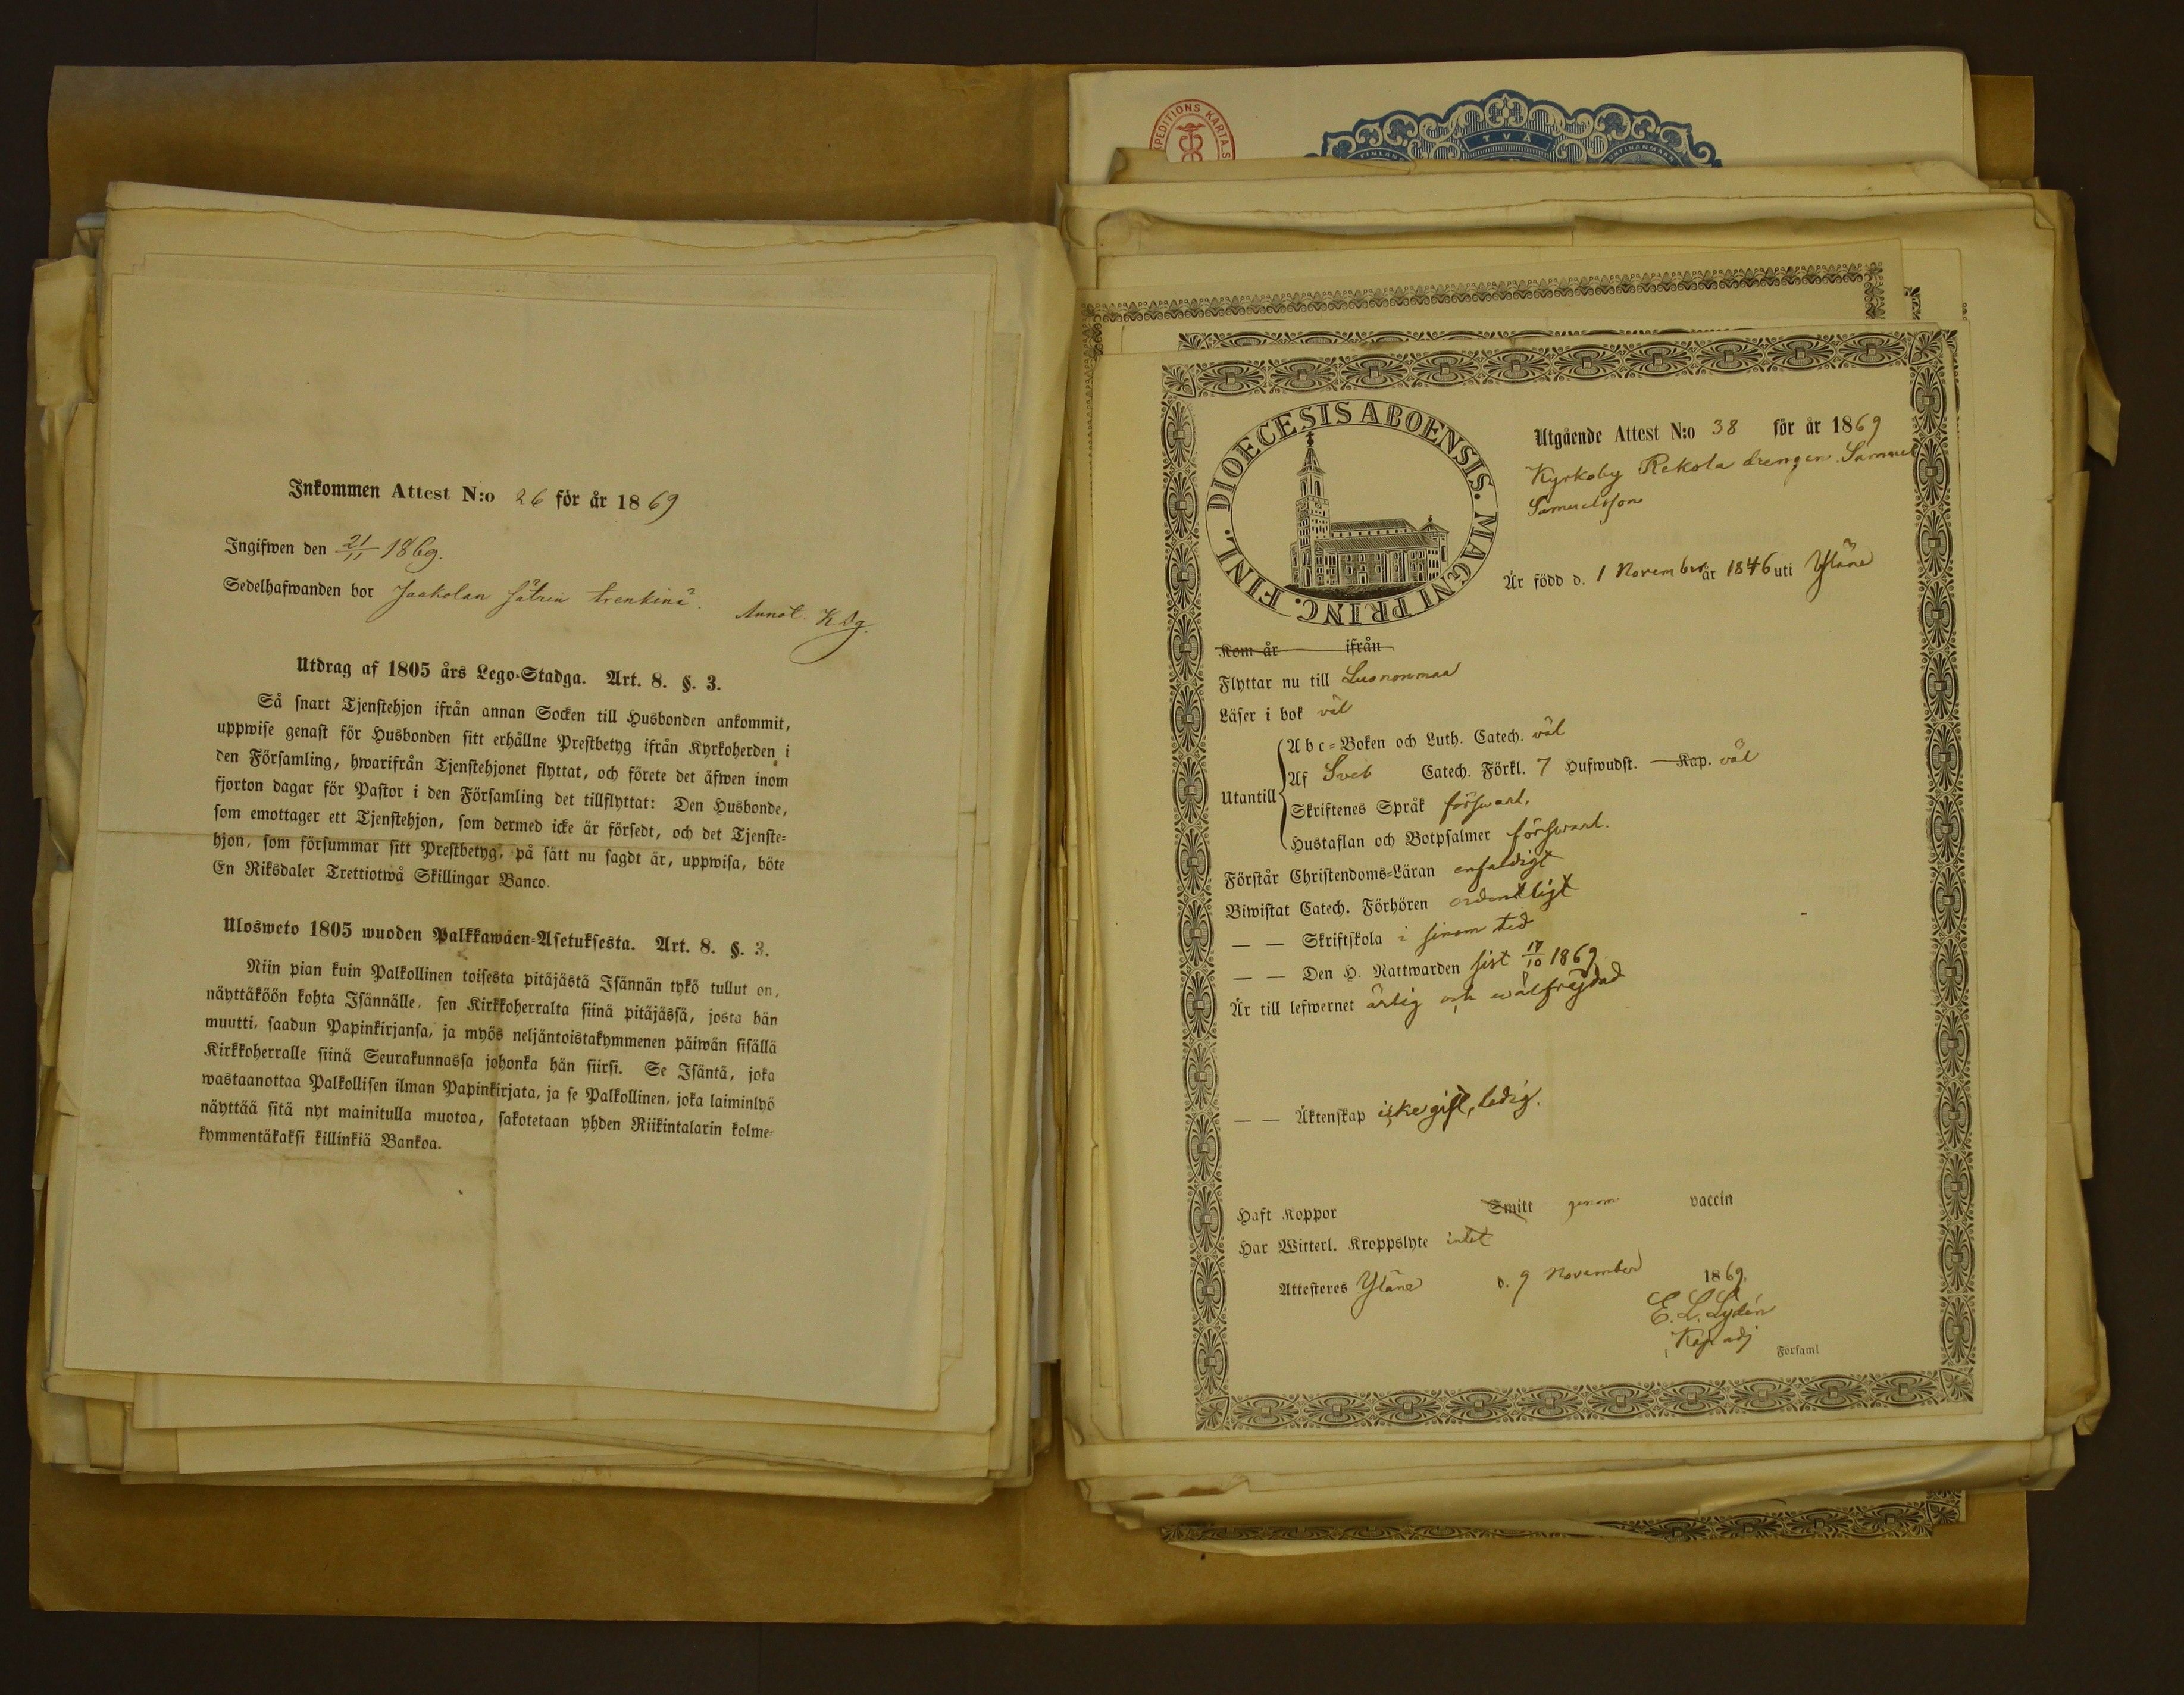 Inkommen Attest N:o 26 för år 1869
Ingifwen den 21/11 1869.
Sedelhafwanden bor Jaakolan sätrin trenkinä.
Annot. KDg.
Utdrag af 1805 års Lego-Stadga. Art. 8. §. 3.
Så snart Tjenstehjon ifrån annan Socken till Husbonden ankommit,
uppwise genast för Husbonden sitt erhållne Prestbetyg ifrån Kyrkoherden i
den Församling, hwarifrån Tjenstehjonet flyttat, och förete det äfwen inom
fjorton dagar för Pastor i den Församling det tillflyttat: Den Husbonde,
som emottager ett Tjenstehjon, som dermed icke är försedt, och det Tjenste-
hjon, som försummar sitt Prestbetyg, på sätt nu sagdt är, uppwisa, böte
En Riksdaler Trettiotwå Skillingar Banco.
Ulosweto 1805 wuoden Palkkawäen-Asetuksesta. Art. 8. §. 3.
Niin pian kuin Palkollinen toisesta pitäjästä Isännän tykö tullut on,
näyttäköön kohta Isännälle, sen Kirkkoherralta siinä pitäjässä, josta hän
muutti, saadun Papinkirjansa, ja myös neljäntoistakymmenen päiwän sisällä
Kirkkoherralle siinä Seurakunnassa johonka hän siirsi. Se Isäntä, joka
wastaanottaa Palkollisen ilman Papinkirjata, ja se Palkollinen, joka laiminlyö
näyttää sitä nyt mainitulla muotoa, sakotetaan yhden Riikintalarin kolme-
kymmentäkaksi killinkiä Bankoa.
EXPEDITIONS KARTA.S
TVÅ
FINLAN
DIOECESIS ABOENSIS. MAGNI PRINC. FINL.
Utgående Attest N:o 38 för år 1869
Kyrkoby Rekola drengen Samuel
Samuelsson
Är född d. 1 November år 1846 uti Yläne
Kom år ifrån
Flyttar nu till Luonnonmaa
Läser i bok väl
Utantill
Abc-Boken och Luth. Catech. väl
Af Sveb Catech. Förkl. 7 Hufwudst. — Kap. väl
Skriftenes Språk försvarl.
Hustaflan och Botpsalmer försvarl.
Förstår Christendoms-Läran enfaldigt
Biwistat Catech. Förhören ordentligt
— — Skriftskola i sinom tid
— — Den H. Nattwarden sist 17/10 1869
Är till lefwernet ärlig och wälfräjdad
— — Äktenskap icke gift, ledig.
Haft Koppor Smitt genom vaccin
Har Witterl. Kroppslyte intet
Attesteras Yläne d. 9 November 1869.
E. L. Lydén
Kap. adj
Församl